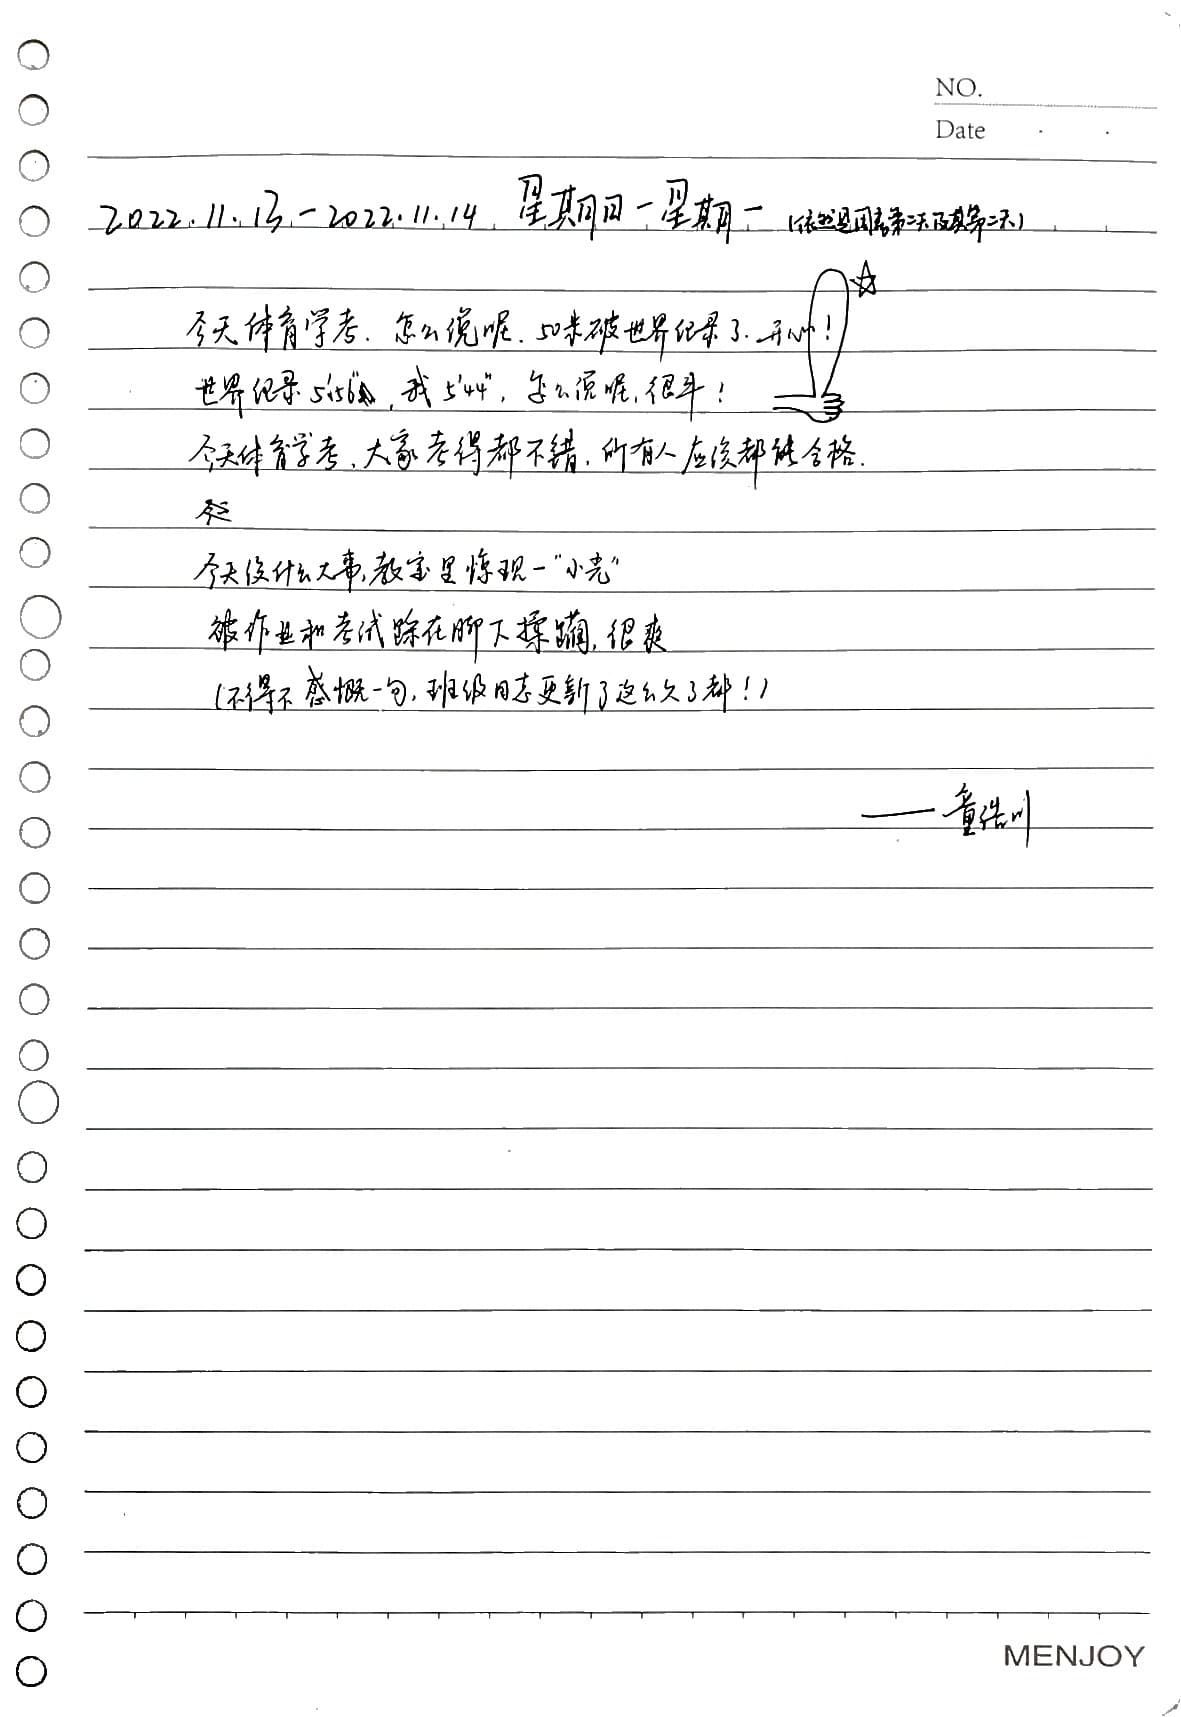 NO.
Date
2022.11.13-2022.11.14 星期日-星期一 (依然是周考第二天及其第二天)
今天体育学考.怎么说呢.50米破世界纪录了.开心!
世界纪录5'56",我5'44",怎么说呢,很牛!
今天体育学考、大家考得都不错.所有人应该都能合格.
今天没什么大事,教室里惊现一"小亮"
被作业和考试踩在脚下揉躏,很爽
(不得不感慨一句,班级日志更新了这么久了都!)
——童浩川
MENJOY